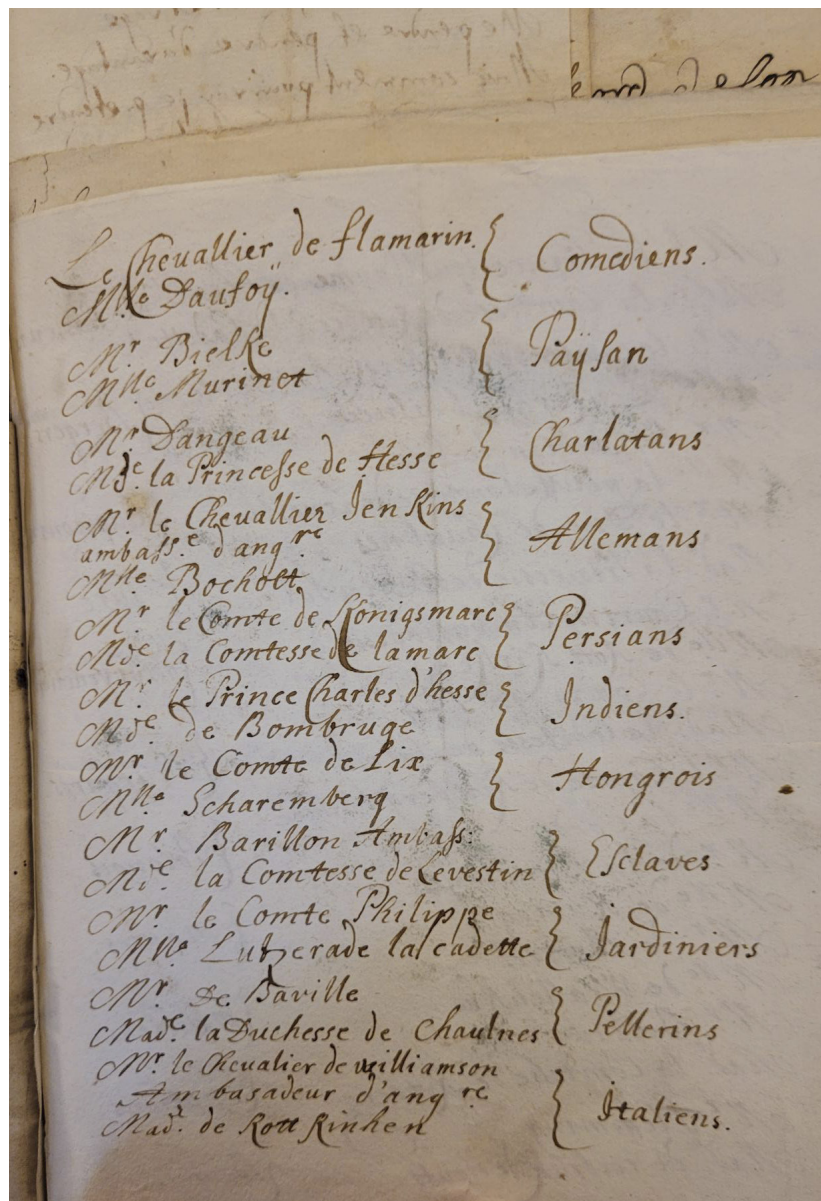 Me pendre et pendre davantage.
hard de lon
Le Chevallier de flamarin. { Comediens.
Mlle Daufoÿ.
Mr Bielke { Païsan
Mlle Murinet
Mr Dangeau { Charlatans
Mde la Princesse de Hesse
Mr le Chevallier Jenkins { Allemans
ambass.e d'angre
Mlle Bocholt
Mr le Comte de Konigsmarc { Persians
Mde la Comtesse de lamarc
Mr le Prince Charles d'hesse { Indiens.
Mde de Bombruge
Mr le Comte de Lix { Hongrois
Mlle Scharemberg
Mr Barillon Ambass: { Esclaves
Mde la Comtesse de Levestin
Mr le Comte Philippe { Jardiniers
Mlle Lutzerade la cadette
Mr De Baville { Pellerins
Made la Duchesse de Chaulnes
Mr le Chevalier de williamson { Italiens.
Ambasadeur d'angre
Made de Rottkinhen